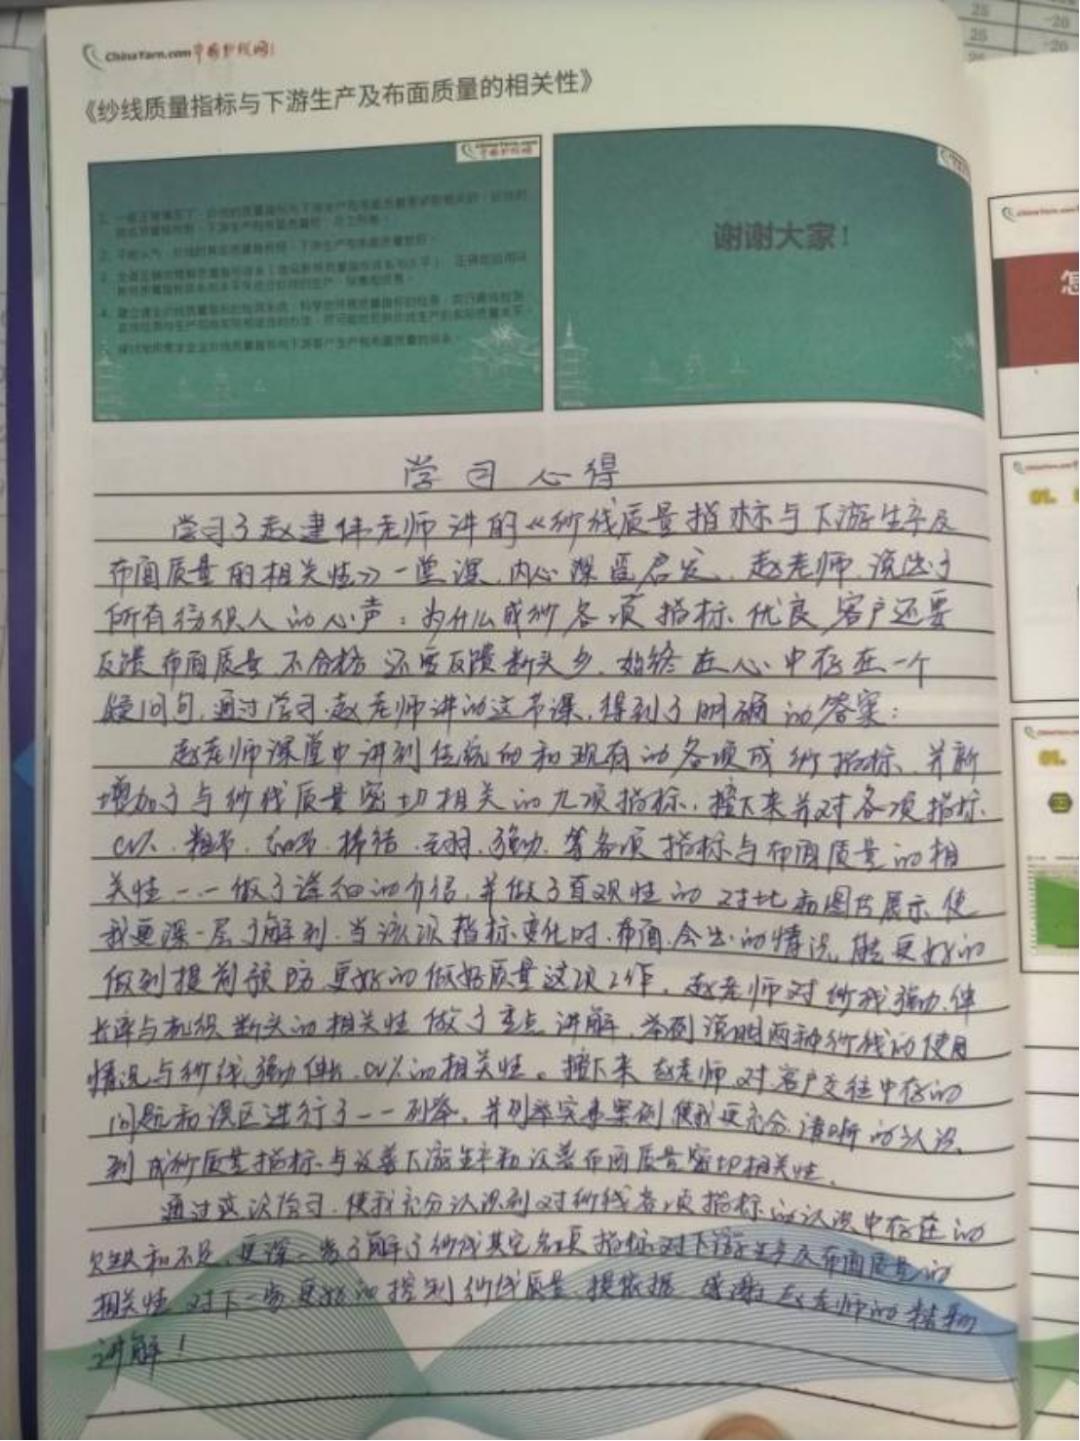 ChinaYarn.com 中国纱线网
《纱线质量指标与下游生产及布面质量的相关性》
谢谢大家！
学习心得
学习了赵建伟老师讲的《纱线质量指标与下游生产及
布面质量的相关性》一堂课，内心深受启发，赵老师说出了
所有纺织人的心声：为什么成纱各项指标优良客户还要
反馈布面质量不合格还要反馈断头多，始终在心中存在一个
疑问句，通过学习赵老师讲的这节课，得到了明确的答案：
赵老师课堂中讲到传统的和现有的各项成纱指标，并新
增加了与纱线质量密切相关的九项指标，接下来并对各项指标
CV%、粗节、细节、棉结、毛羽、强力、等各项指标与布面质量的相
关性一一做了详细的介绍，并做了直观性的对比和图片展示使
我更深一层了解到，当该项指标变化时，布面会出的情况，能更好的
做到提前预防更好的做好质量这项工作。赵老师对纱线强力、伸
长率与机织断头的相关性做了重点讲解，举例说明两种纱线的使用
情况与纱线强力伸长、CV%的相关性。接下来赵老师对客户交往中存的
问题和误区进行了一一列举，并列举实来案例使我更充分清晰的认识
到成纱质量指标与改善下游生产和改善布面质量密切相关性。
通过这次学习，使我充分认识到对纱线各项指标的认识中存在的
欠缺和不足，更深一步了解了纱线其它各项指标对下游生产及布面质量的
相关性对下一步更好的控制纱线质量，提依据 感谢赵老师的精彩
讲解！
怎
01.
01.
25
-20
25
-20